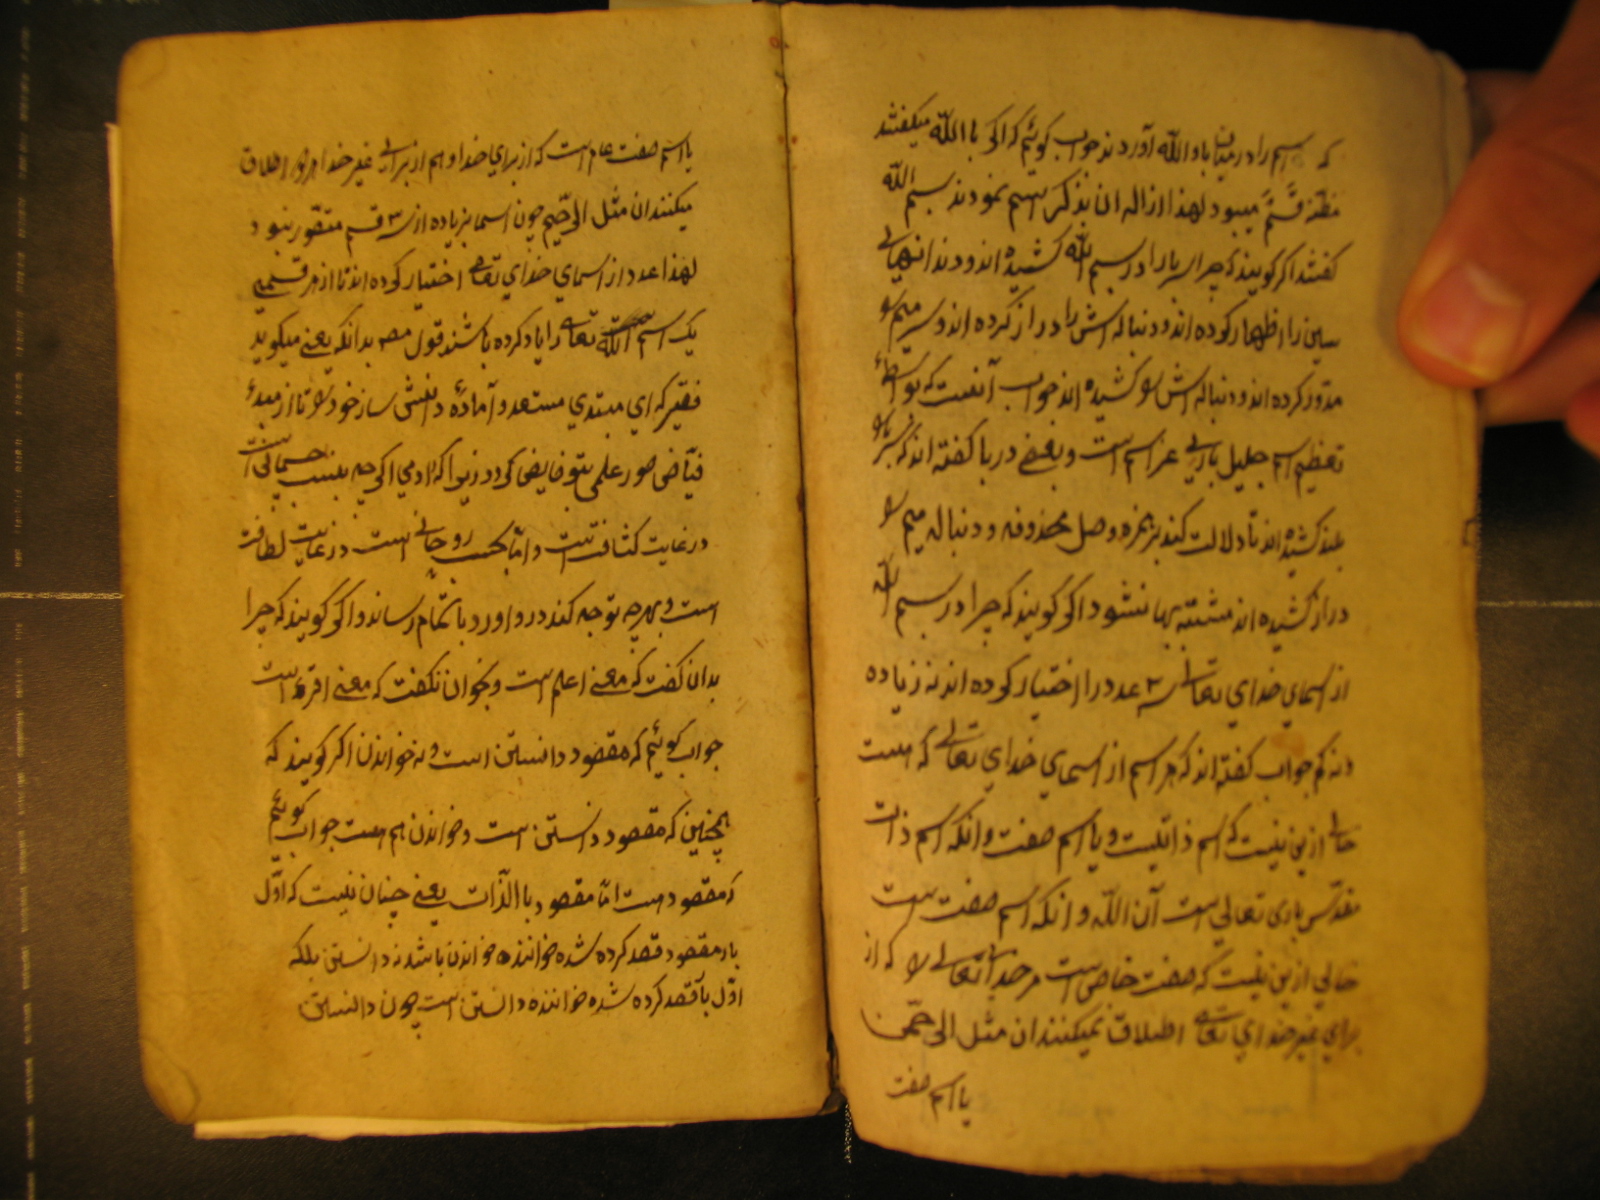 که اسم را در میان با و الله آوردند جواب گوئیم که اگر باالله میگفتند
مظنه قسم میبود لهذا ازاله ان بذکر اسم نمودند بسم الله
گفتند اگر گویند که چرا سر با را در بسم الله کشیده اند و دندانهای
سین را اظهار کرده اند و دنباله اش را دراز کرده اند و سر میم را
مدور کرده اند و دنباله اش را کشیده اند جواب آنست که بواسطهٔ
تعظیم اسم جلیل باری عز اسم است و بعضی در با گفته اند که سر با را
بلند کشیده اند تا دلالت کند بر همزه وصل محذوفه و دنباله میم را
دراز کشیده اند مشتبه بها نشود اگر گویند که چرا در بسم الله
از اسمای خدای تعالی ۳ عدد را اختیار کرده اند نه زیاده
و نه کم جواب گفته اند که هر اسم از اسمای خدای تعالی که هست
خالی ازین نیست که اسم ذاتیست و یا اسم صفت و انکه اسم ذات
مقدس باری تعالی است آن الله و انکه اسم صفت است
خالی ازین نیست که صفت خاص است مر خدای تعالی را که از
برای غیر خدای تعالی اطلاق نمیکنند ان مثل الرحمن
یا اسم صفت
یا اسم صفت عام است که از برای خدا و هم از برای غیر خدا اطلاق
میکنند ان مثل الرحیم چون اسما بزیاده از ۳ قسم متصور نبود
لهذا ۳ عدد از اسمای خدای تعالی اختیار کرده اند تا از هر قسمی
یک اسم الله تعالی را یاد کرده باشند قول مصه بدانکه یعنی میگوید
فقیر که ای مبتدی مستعد و آمادهٔ دانش ساز خود را تا از مبدء
فیاض صور علمی بتو فایض گردد زیرا که ادمی اگرچه بنسبت جسمانی است
در غایت کثافتست و اما بحسب روحانی است در غایت لطافت
است و بهرچه توجه کند در و اورد باتمام رساند و اگر گویند که چرا
بدان گفت که معنی اعلم است و بخوان نگفت که معنی اقرء است
جواب گوئیم که مقصود دانستن است و نه خواندن اگر گویند که
همچنین که مقصود دانستن است و خواندن هم هست جواب گوئیم
که مقصود هست اما مقصود باالذات یعنی چنان نیست که اول
بار مقصود قصد کرده شده خواننده خواندن باشد نه دانستن بلکه
اول بار قصد کرده شده خواننده دانستن است چون دانستن